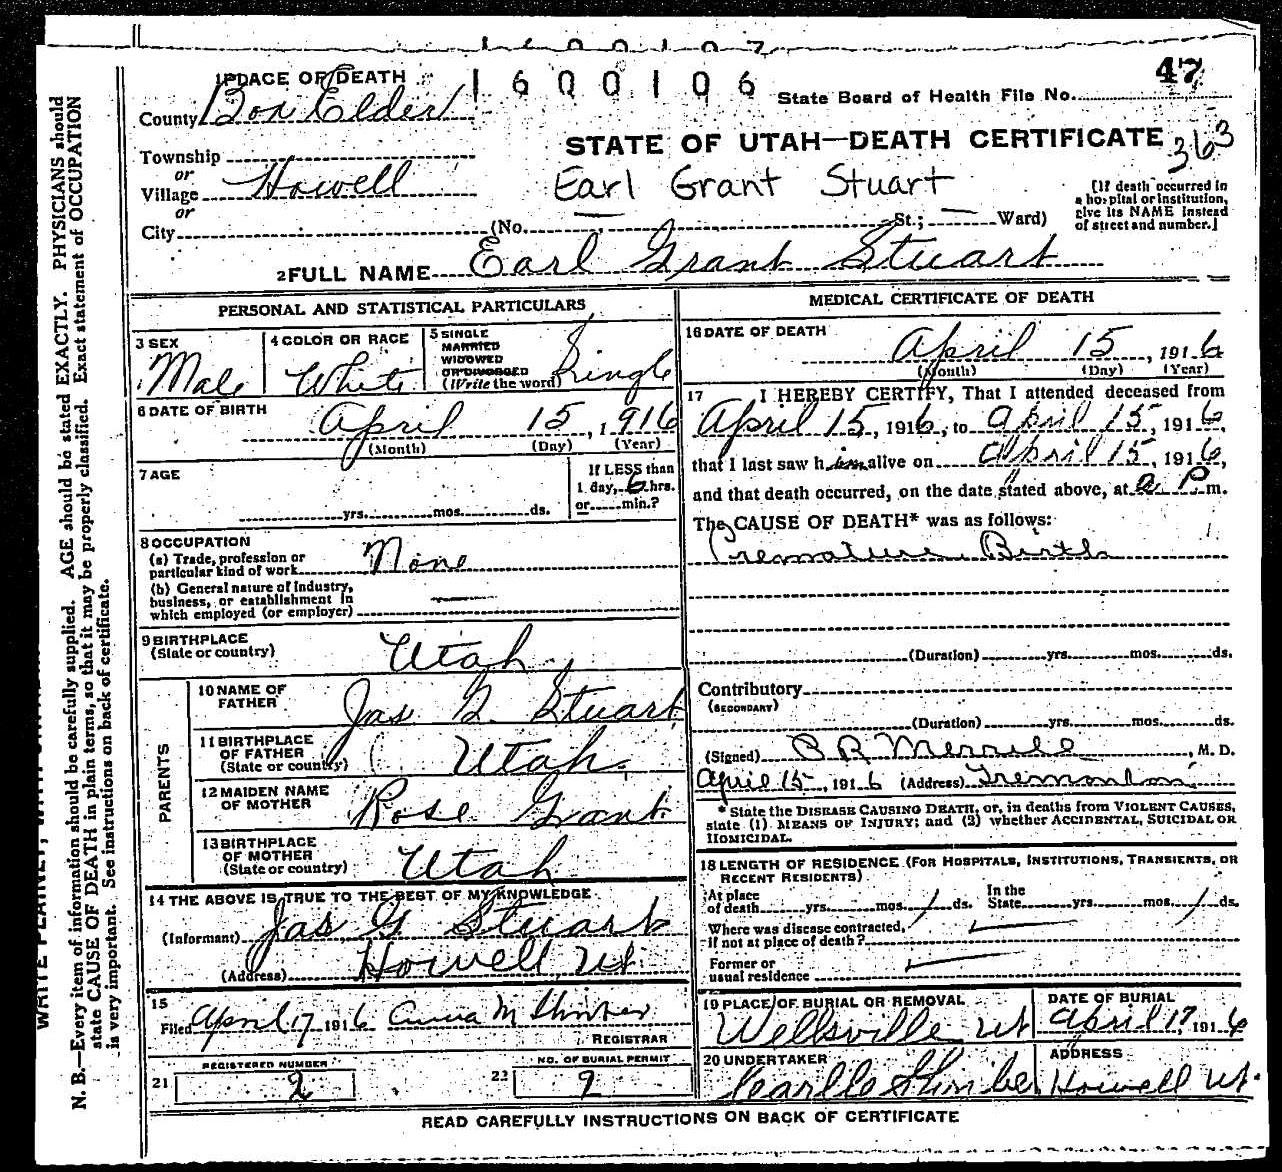 1600107
1 PLACE OF DEATH
1600106
47
County Box Elder
State Board of Health File No.
STATE OF UTAH—DEATH CERTIFICATE
363
Township
or
Village Howell
Earl Grant Stuart
[If death occurred in
a hospital or institution,
give its NAME instead
of street and number.]
or
City (No. — St.; — Ward)
2 FULL NAME Earl Grant Stuart
PERSONAL AND STATISTICAL PARTICULARS
3 SEX
Male
4 COLOR OR RACE
White
5 SINGLE
MARRIED
WIDOWED
OR DIVORCED
(Write the word) Single
6 DATE OF BIRTH
April 15, 1916
(Month) (Day) (Year)
7 AGE
yrs. mos. ds.
If LESS than
1 day, 6 hrs.
or min.?
8 OCCUPATION
(a) Trade, profession or
particular kind of work None
(b) General nature of industry,
business, or establishment in
which employed (or employer) —
9 BIRTHPLACE
(State or country) Utah
PARENTS
10 NAME OF
FATHER Jas G. Stuart
11 BIRTHPLACE
OF FATHER
(State or country) Utah.
12 MAIDEN NAME
OF MOTHER Rose Grant
13 BIRTHPLACE
OF MOTHER
(State or country) Utah
14 THE ABOVE IS TRUE TO THE BEST OF MY KNOWLEDGE
(Informant) Jas G Stuart
(Address) Howell, Ut.
15
Filed April 17 1916 Anna M
REGISTRAR
REGISTERED NUMBER
21 2
NO. OF BURIAL PERMIT
22 2
MEDICAL CERTIFICATE OF DEATH
16 DATE OF DEATH
April 15, 1916
(Month) (Day) (Year)
17 I HEREBY CERTIFY, That I attended deceased from
April 15, 1916, to April 15, 1916,
that I last saw him alive on April 15, 1916,
and that death occurred, on the date stated above, at P m.
The CAUSE OF DEATH* was as follows:
Premature Birth
(Duration) yrs. mos. ds.
Contributory
(SECONDARY)
(Duration) yrs. mos. ds.
(Signed) Merrill, M. D.
April 15, 1916 (Address) Tremonton
* State the DISEASE CAUSING DEATH, or, in deaths from VIOLENT CAUSES,
state (1) MEANS OF INJURY; and (2) whether ACCIDENTAL, SUICIDAL OR
HOMICIDAL.
18 LENGTH OF RESIDENCE (FOR HOSPITALS, INSTITUTIONS, TRANSIENTS, OR
RECENT RESIDENTS)
At place
of death yrs. mos. / ds.
In the
State yrs. mos. / ds.
Where was disease contracted,
if not at place of death?
Former or
usual residence
19 PLACE OF BURIAL OR REMOVAL
Wellsville Ut
DATE OF BURIAL
April 17, 1916
20 UNDERTAKER
ADDRESS
Howell Ut.
READ CAREFULLY INSTRUCTIONS ON BACK OF CERTIFICATE
N. B.—Every item of information should be carefully supplied. AGE should be stated EXACTLY. PHYSICIANS should
state CAUSE OF DEATH in plain terms, so that it may be properly classified. Exact statement of OCCUPATION
is very important. See instructions on back of certificate.